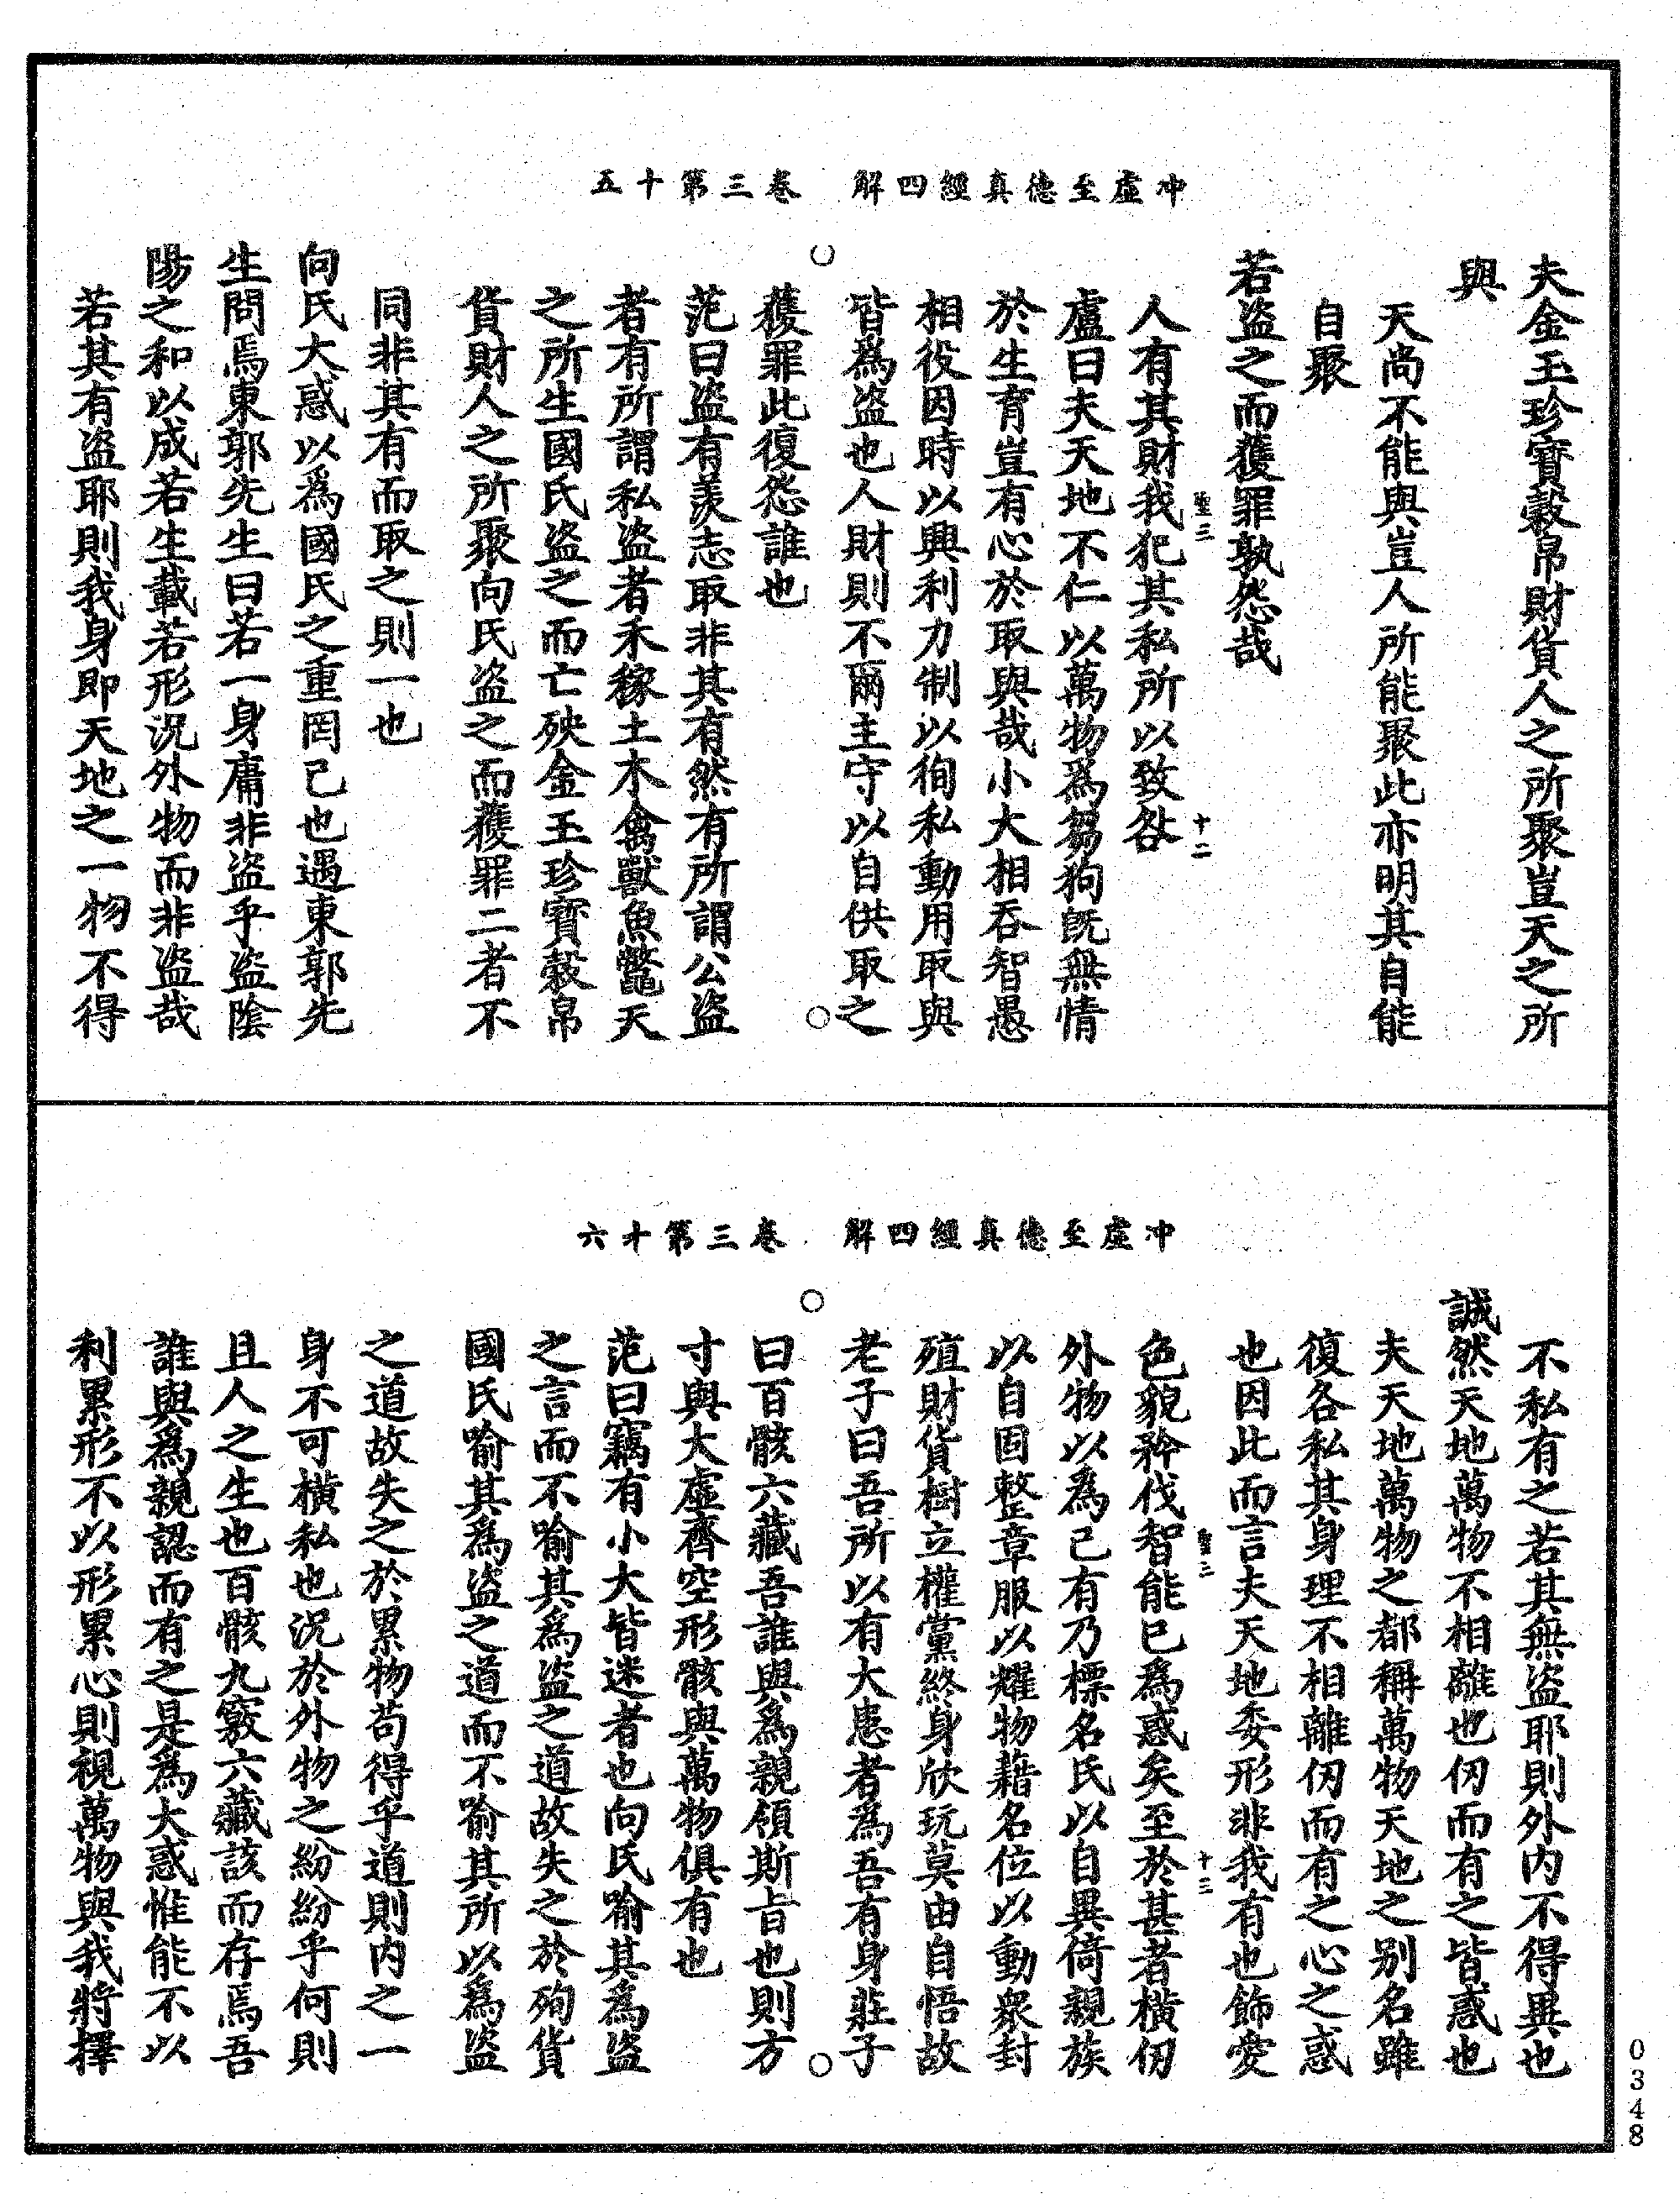 冲虛至德真經四解　卷三第十五
夫金玉珍寶穀帛財貨人之所聚豈天之所
與
天尚不能與豈人所能聚此亦明其自能
自聚
若盜之而獲罪孰怨哉
人有其財我犯其私所以致咎
盧曰夫天地不仁以萬物爲芻狗旣無情
於生育豈有心於取與哉小大相吞智愚
相役因時以興利力制以徇私動用取與
皆爲盜也人財則不爾主守以自供取之
獲罪此復怨誰也
范曰盜有羨志取非其有然有所謂公盜
者有所謂私盜者禾稼土木禽獸魚鼈天
之所生國氏盜之而亡殃金玉珍寶穀帛
貨財人之所聚向氏盜之而獲罪二者不
同非其有而取之則一也
向氏大惑以爲國氏之重罔己也遇東郭先
生問焉東郭先生曰若一身庸非盜乎盜陰
陽之和以成若生載若形況外物而非盜哉
若其有盜耶則我身即天地之一物不得
十二
冲虛至德真經四解　卷三第十六
不私有之若其無盜耶則外內不得異也
誠然天地萬物不相離也仞而有之皆惑也
夫天地萬物之都稱萬物天地之別名雖
復各私其身理不相離仞而有之心之惑
也因此而言夫天地委形非我有也飾愛
色貌矜伐智能已爲惑矣至於甚者橫仞
外物以爲己有乃標名氏以自異倚親族
以自固整章服以耀物藉名位以動衆封
殖財貨樹立權黨終身欣玩莫由自悟故
老子曰吾所以有大患者爲吾有身莊子
曰百骸六藏吾誰與爲親領斯旨也則方
寸與大虛齊空形骸與萬物俱有也
范曰竊有小大皆迷者也向氏喻其爲盜
之言而不喻其爲盜之道故失之於殉貨
國氏喻其爲盜之道而不喻其所以爲盜
之道故失之於累物苟得乎道則內之一
身不可橫私也況於外物之紛紛乎何則
且人之生也百骸九竅六藏該而存焉吾
誰與爲親認而有之是爲大惑惟能不以
利累形不以形累心則視萬物與我將擇
十三
0348